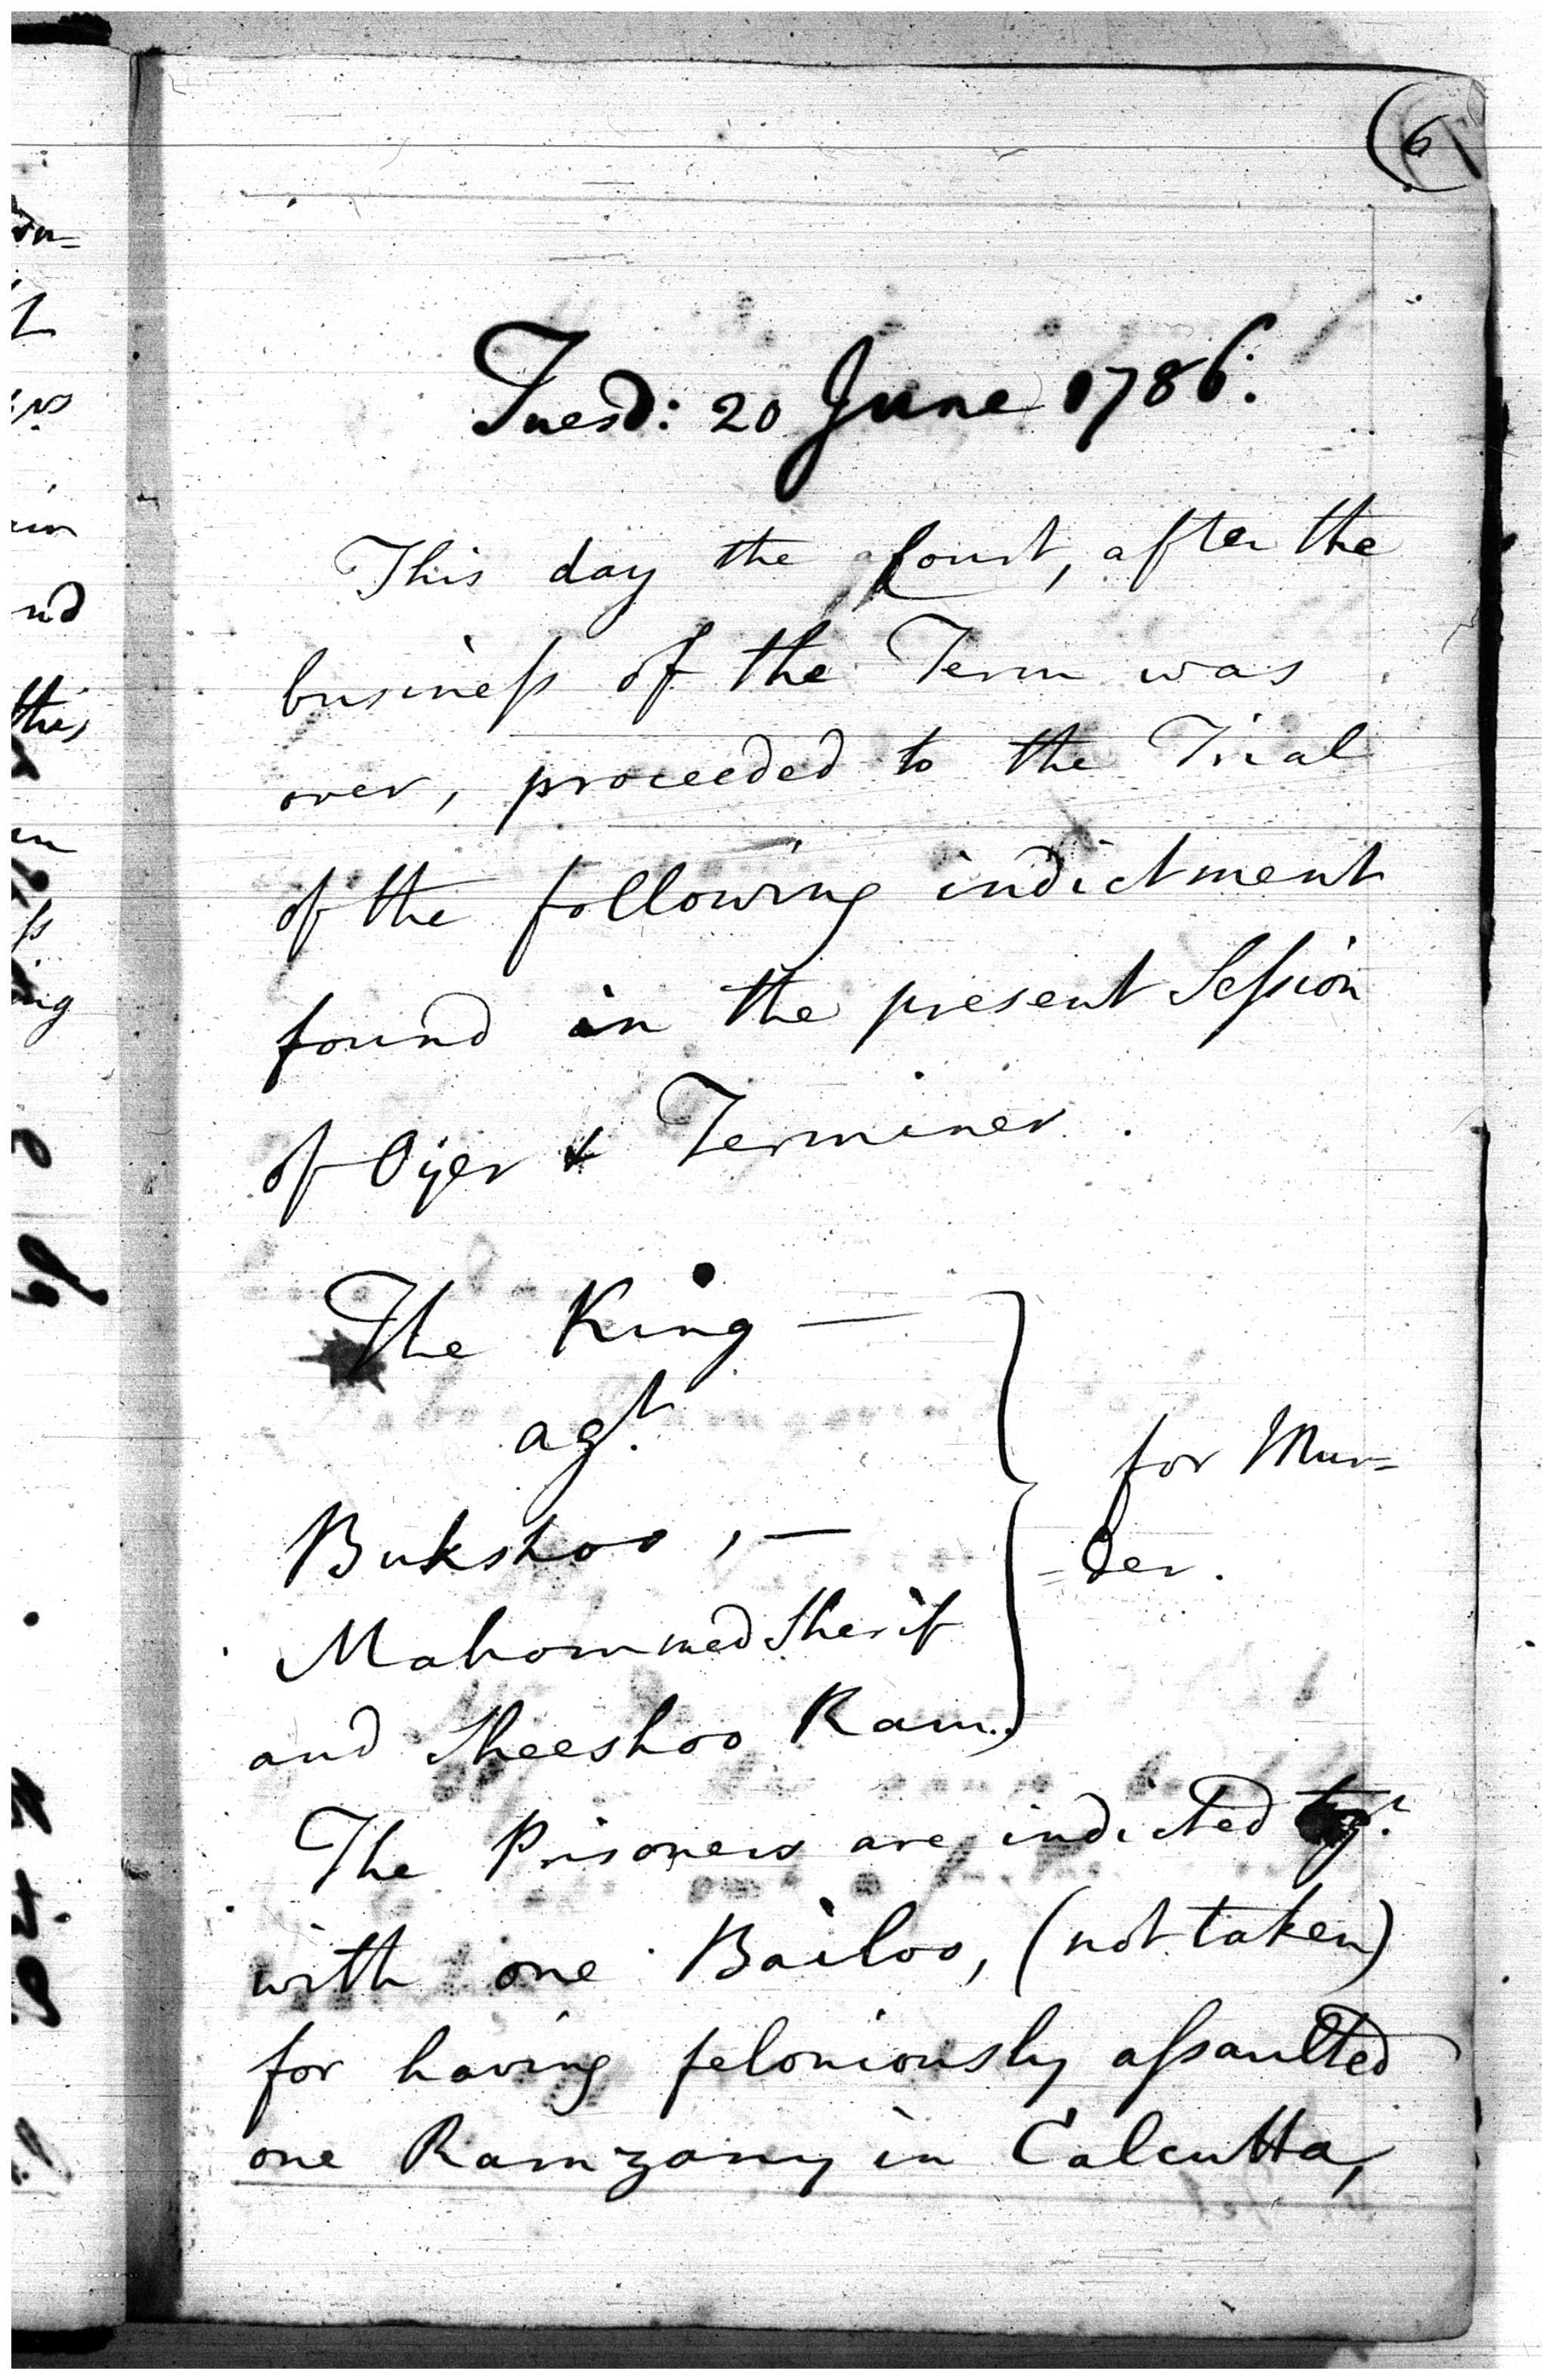 (6
Tuesd: 20 June 1786.
This day the Court, after the
business of the Term was
over, proceeded to the Trial
of the following indictment
found in the present Session
of Oyer & Terminer.
The King —
agt.
Bukshoo, —
for Mur=
Mahommed Sherif
=der.
and Sheeshoo Ram.
The Prisoners are indicted
with one Bailoo, (not taken)
for having feloniously assaulted
one Ramzany in Calcutta,